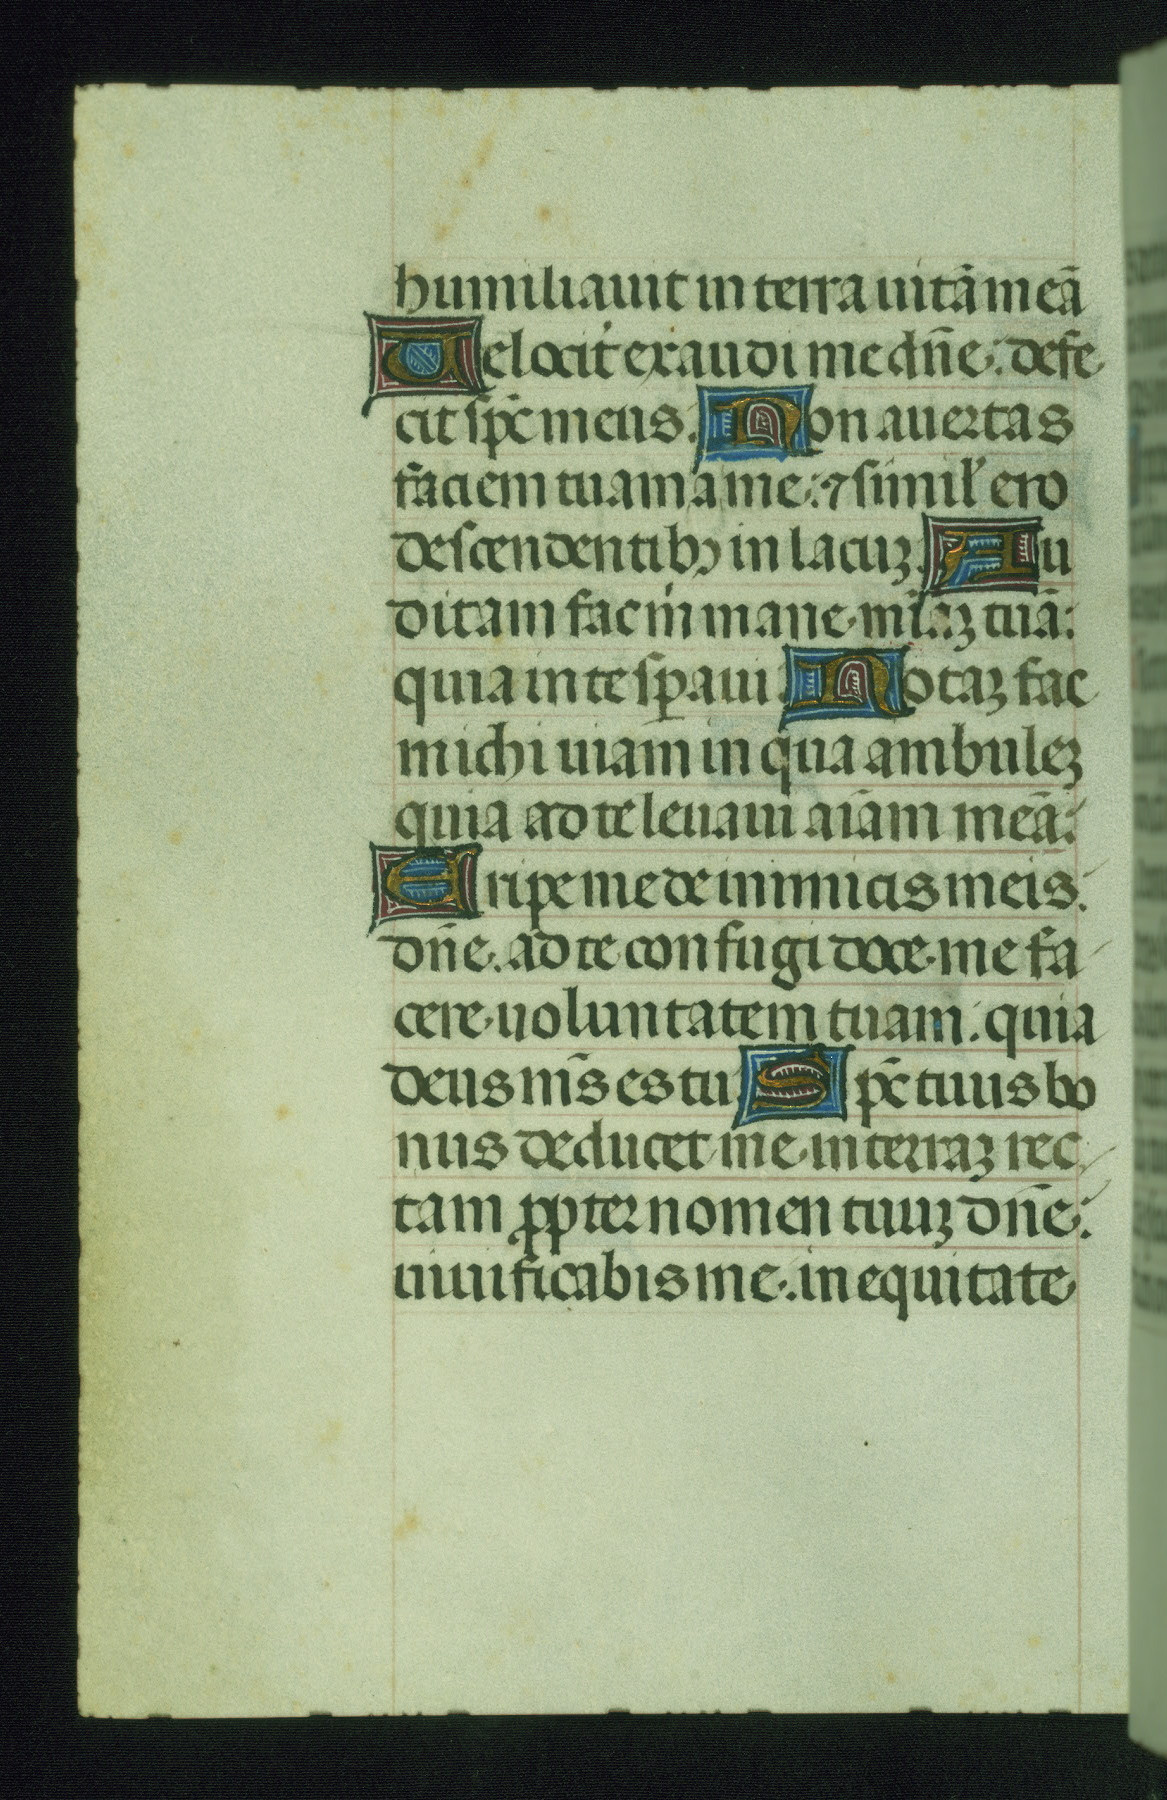 humiliauit in terra uitā meā
Uelocit̉ exaudi me dn̄e: defe
cit sp̄c meus. Non auertas
faciem tuam a me: ⁊ simil̉ ero
descendentibꝫ in lacuꝫ. Au
ditam fac m̉ mane mīaꝫ tuā:
quia in te sꝑaui. Notaꝫ fac
michi uiam in qua ambuleꝫ
quia ad te leuaui aīam meā:
Eripe me de inimicis meis.
dn̄e. ad te confugi doce me fa
cere uoluntatem tuam: quia
deus m̄s es tu. Sp̄c tuus bo
nus deducet me in terraꝫ rec
tam ꝓpter nomen tuuꝫ dn̄e:
uiuificabis me. in equitate